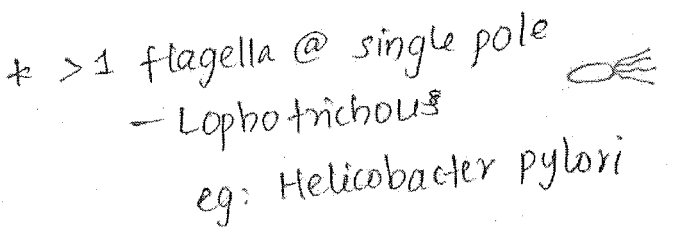 * >1 flagella @ single pole
- Lophotrichous
eg: Helicobacter pylori